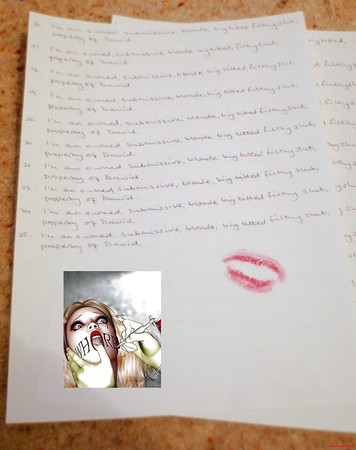 I'm an owned, submissive, blonde, big titted filthy slut,
property of David
17. I'm an owned, submissive, blonde, big titted filthy slut,
property of David
18. I'm an owned, submissive, blonde, big titted filthy slut,
property of David.
19. I'm an owned, submissive, blonde, big titted filthy slut,
property of David.
20. I'm an owned, submissive, blonde, big titted filthy slut,
property of David.
21. I'm an owned, submissive, blonde, big titted filthy slut,
property of David.
22. I'm an owned, submissive, blonde, big titted filthy slut,
property of David.
23. I'm an owned, submissive, blonde, big titted filthy slut,
property of David.
24. I'm an owned, submissive, blonde, big titted filthy slut,
property of David.
25. I'm an owned, submissive, blonde, big titted filthy slut,
property of David.
WHOR